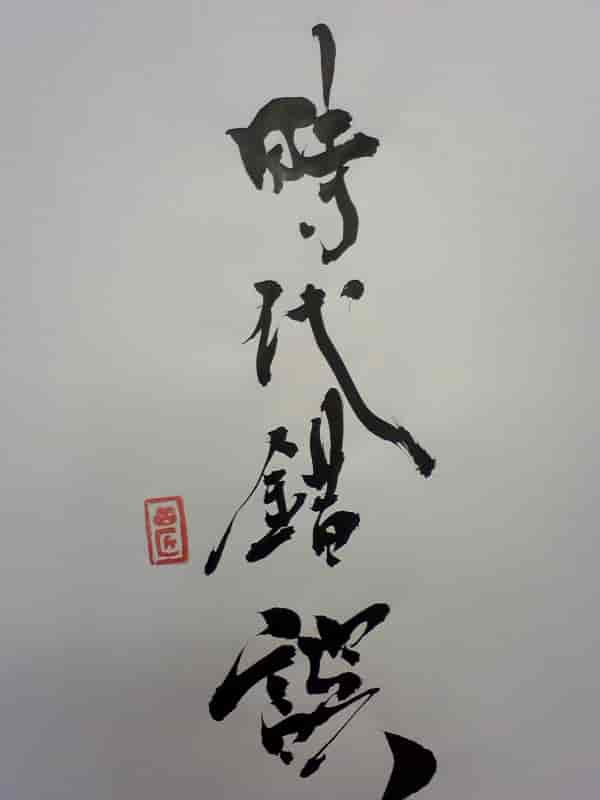 時代錯誤